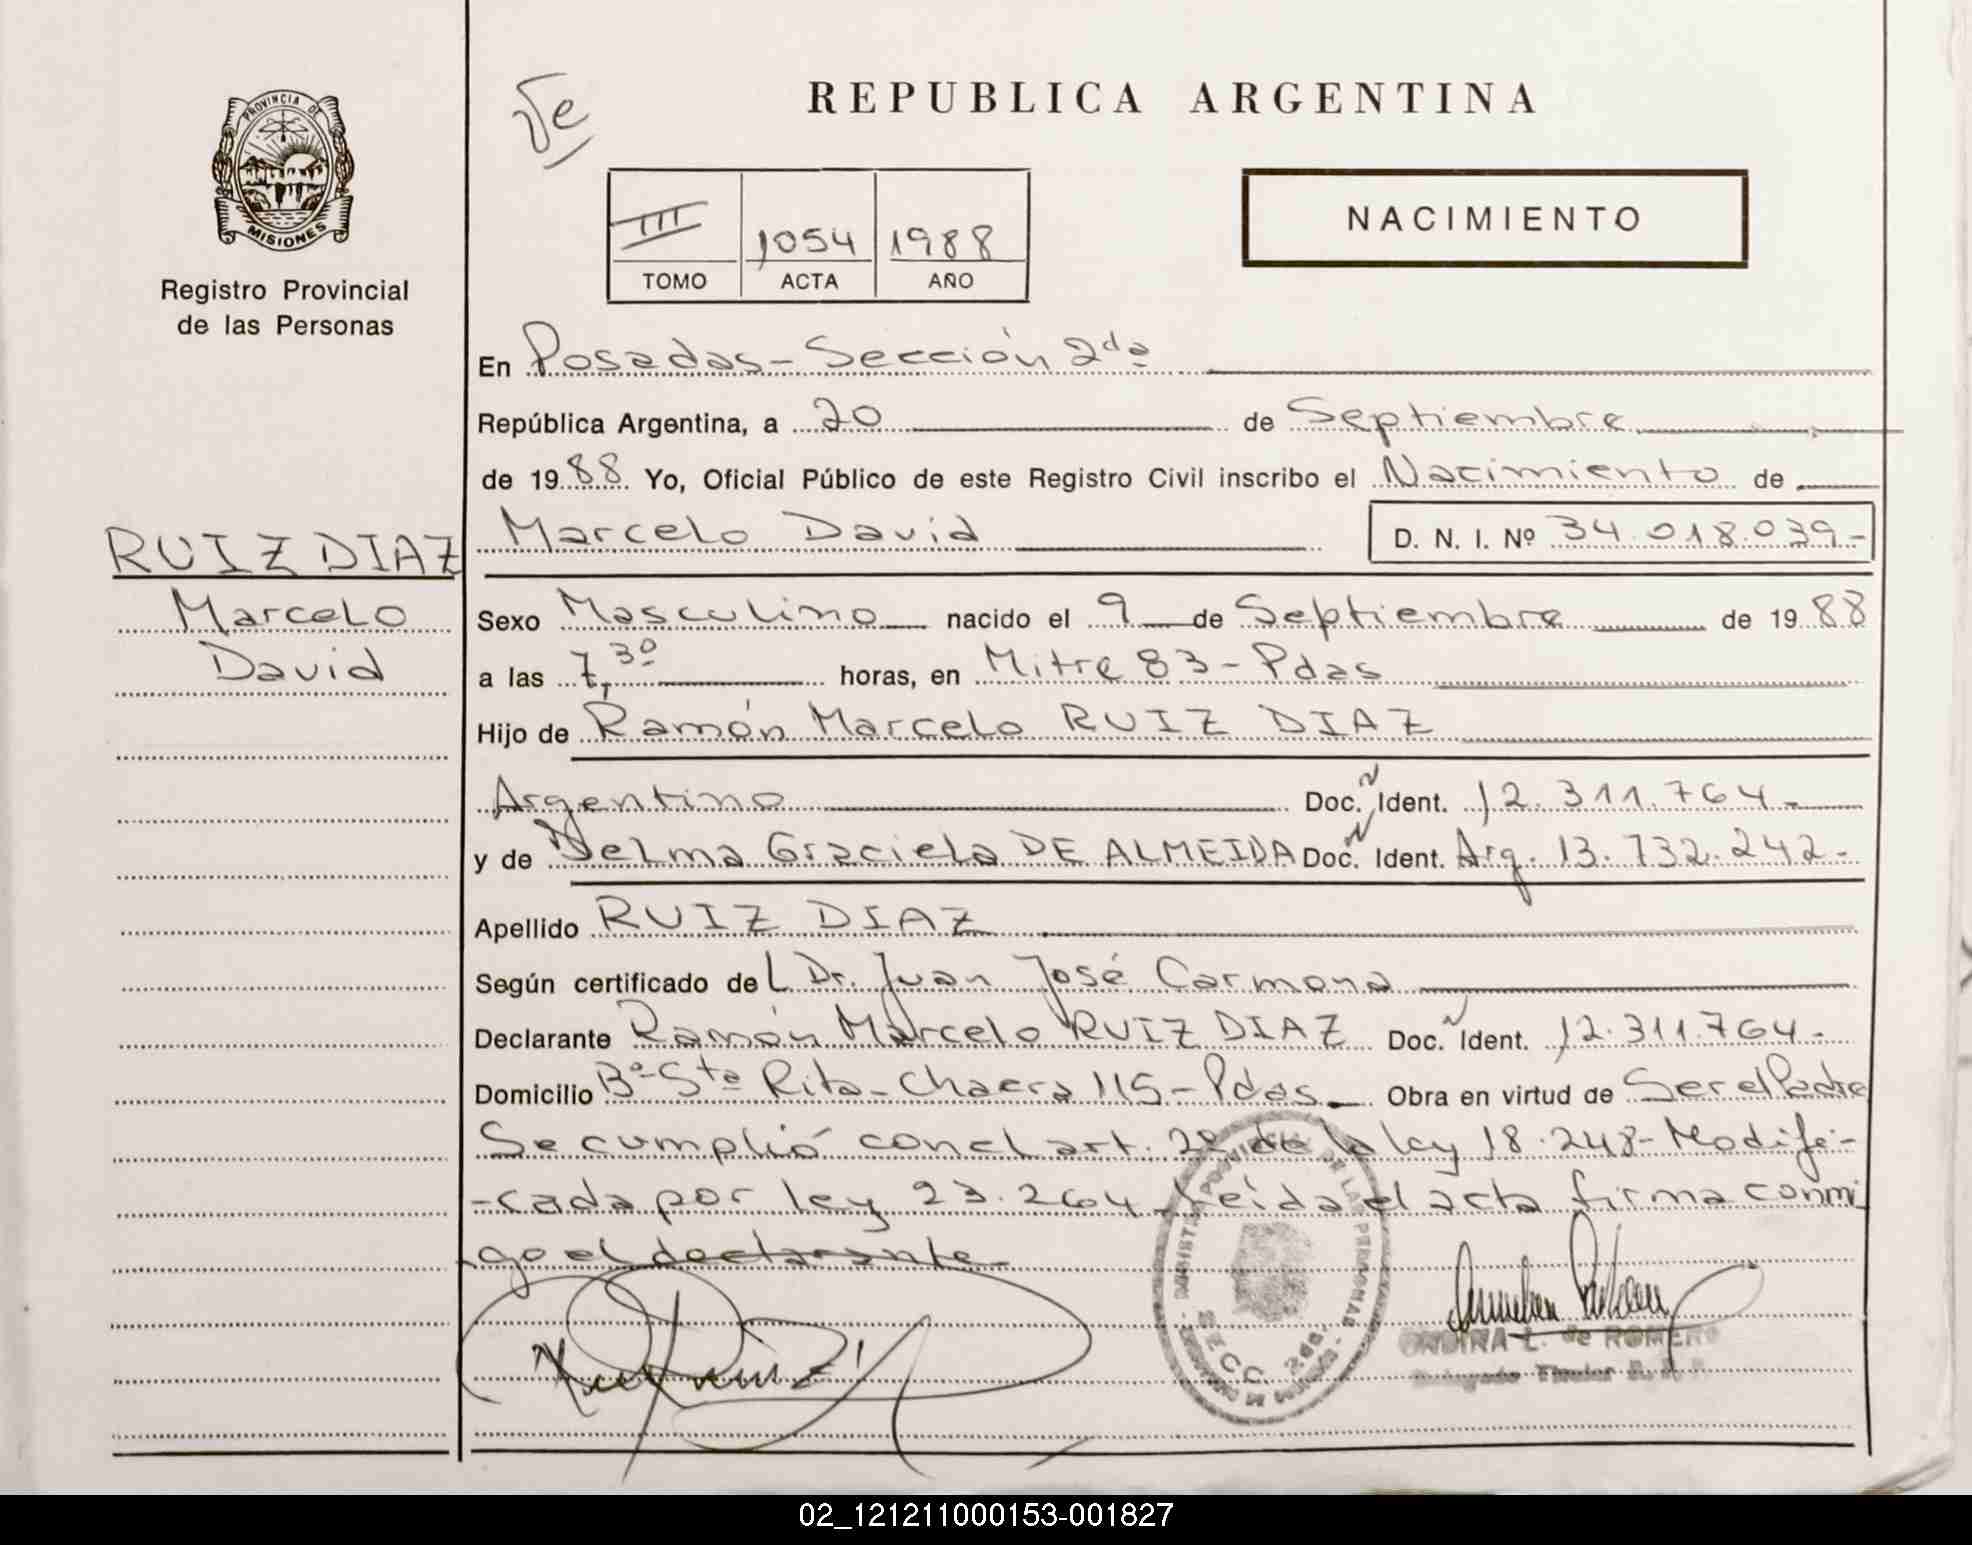 PROVINCIA DE
MISIONES
Registro Provincial
de las Personas
REPUBLICA ARGENTINA
III 1054 1988
TOMO ACTA AÑO
NACIMIENTO
En Posadas - Sección 2da
República Argentina, a 20 de Septiembre
de 1988 Yo, Oficial Público de este Registro Civil inscribo el Nacimiento de
RUIZ DIAZ
Marcelo
David
Marcelo David D. N. I. Nº 34.018.039.-
Sexo Masculino nacido el 9 de Septiembre de 1988
a las 7,30 horas, en Mitre 83 - Pdas
Hijo de Ramón Marcelo RUIZ DIAZ
Argentino Doc. Ident. 12.311.764.-
y de Nelma Graciela DE ALMEIDA Doc. Ident. Arg. 13.732.242.-
Apellido RUIZ DIAZ
Según certificado del Dr. Juan José Carmona
Declarante Ramón Marcelo RUIZ DIAZ Doc. Ident. 12.311.764.-
Domicilio Bº Sta Rita - Chacra 115 - Pdas. Obra en virtud de Ser el Padre
Se cumplió con el art. 2º de la ley 18.248 - Modifi-
-cada por ley 23.264. Leída el acta firma conmi
go el declarante
SECC. 2da.
ONDINA L. de ROMERO
Delegado Titular
02_121211000153-001827